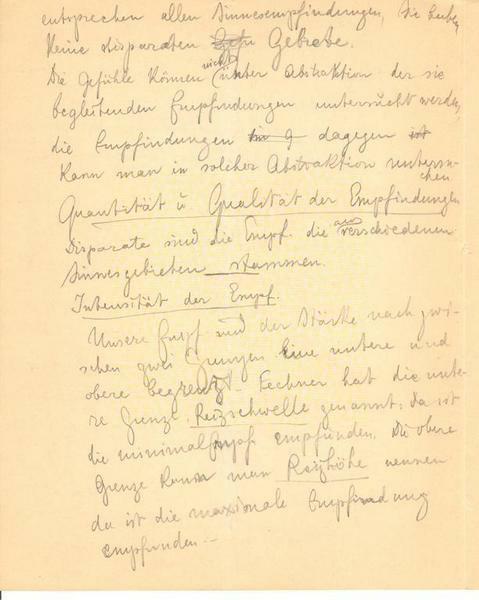 entsprechen allen Sinnesempfindungen, sie haben
keine disparaten Gebiete.
Die Gefühle können nicht unter Abstraktion der sie
begleitenden Empfindungen untersucht werden,
die Empfindungen dagegen
kann man in solcher Abstraktion untersu-
chen
Quantität u. Qualität der Empfindungen
Disparate sind die Empf. die aus verschiedenen
Sinnesgebieten stammen.
Intensität der Empf.
Unsere Empf. sind der Stärke nach zwi-
schen zwei Grenzen. Eine untere und
obere begrenzt. Fechner hat die unte-
re Grenze Reizschwelle genannt: da ist
die minimal Empf. empfunden. Die obere
Grenze kann man Reizhöhe nennen
da ist die maximale Empfindung
empfunden.-